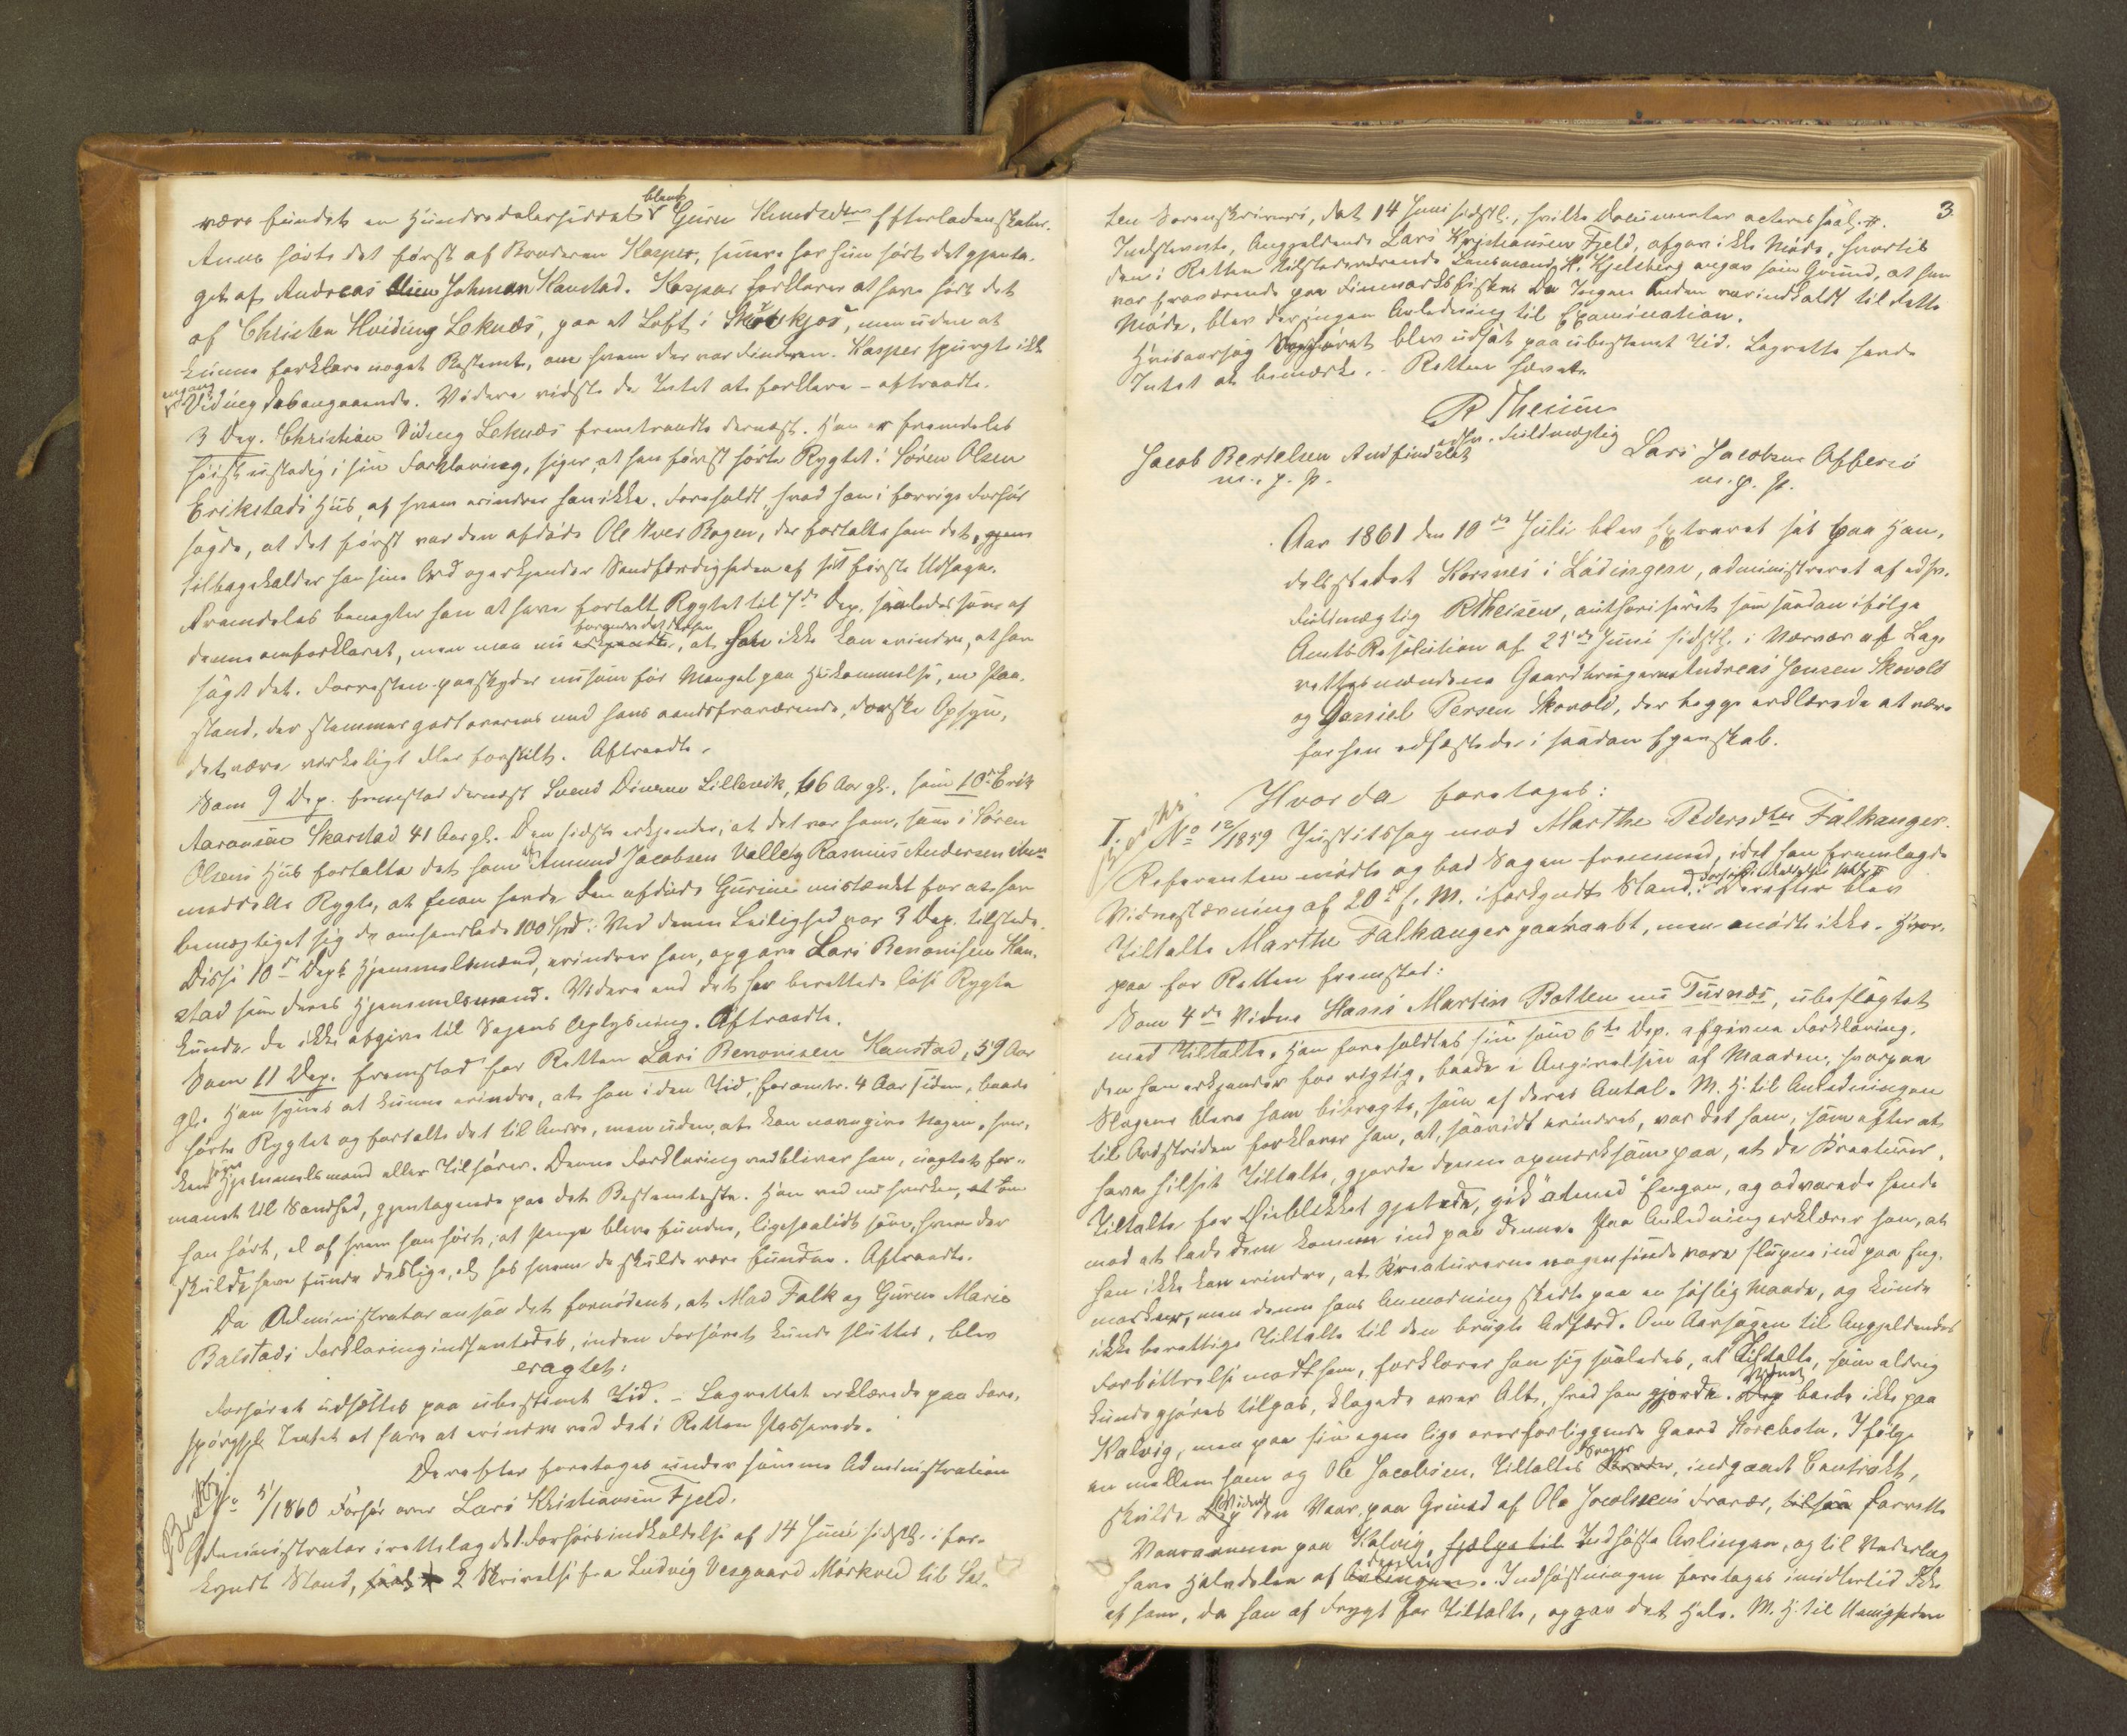 være fundet en Hundredalerseddel blandt Guru Knudsdtrs Efterladenskaber.
Anne hørte det først af Broderen Kasper, senere har hun hørt det gjenta-
get af Andreas Johnsen Kanstad. Kasper forklarer at have hørt det
af Christen Hviding Leknes, paa et Loft i, men uden at
kunne forklare noget Bestemt, om hvem der var Finderen. Kasper spurgte ikke
engang Viding desangaaende. Videre vidste de Intet at forklare – aftraadte.
3 Dep. Christian Viding Leknes fremtraadte dernæst. Han er fremdeles
høist ustadig i sin Forklaring, siger, at han først hørte Rygtet i Søren Olsen
Erikstads Hus, af hvem erindrer han ikke. Foreholdt, hvad han i forrige Forhør
sagde, at det først var den afdøde Ole Iver Bogen, der fortalte ham det,
tilbagekalder han sine Ord og erkjender Sandfærdigheden af sit første Udsagn.
Fremdeles benegter han at have fortalt Rygtet til 7de Dep. saaledes som af
denne omforklaret, men maa nu, at han ikke kan erindre, at have
sagt det. Forresten paaskyder nu som før Mangel paa Hukommelse, en Paa-
stand, der stemmer godt overens med hans aandsfraværende, dorske Opsyn,
det være virkeligt eller forstilt. Aftraadte.
Som 9 Dep. fremstod dernæst Svend Lillevik, 66 Aar gl., som 10de Erik
Aaronsen Skarstad 41 Aar gl. Den sidste erkjender, at det var ham, som i Søren
Olsens Hus fortalte det ham af Amund Jacobsen Valle og Rasmus Andersen
meddelte Rygte, at man havde den afdøde Gurine mistænkt for at have
bemægtiget sig de omhandlede 100 Spd. Ved denne Leilighed var 3 Dep. tilstede.
Disse 10de Deps Hjemmelsmænd, erindrer han, opgave Lars Benonisen Kan-
stad som deres Hjemmelsmand. Videre end det her berettede løse Rygte
kunde de ikke afgive til Sagens Oplysning. Aftraadte.
Som 11 Dep. fremstod for Retten Lars Benonisen Kanstad, 59 Aar
gl. Han synes at kunne erindre, at han i den Tid, for omtr. 4 Aar siden, baade
hørte Rygtet og fortalte det til Andre, men uden, at kan navngive Nogen, hver-
ken som Hjemmelsmand eller Tilhører. Denne Forklaring vedbliver han, uagtet for-
manet til Sandhed, gjentagende paa det Bestemteste. Han ved nu hverken, om
han hørt, el af hvem han hørt, at Penge bleve fundne, ligesaalidt som, hvem der
skulde have funde deslige, el hos hvem de skulde være fundne. Aftraadte.
Da Administrator ansaa det fornødent, at Mad Falk og Guru Marie
Balstads Forklaring indhentedes, inden Forhøret kunde sluttes, blev
eragtet:
Forhøret udsættes paa ubestemt Tid. – Lagrettet erklærede paa Fore-
spørgsel Intet at have at erindre ved det i Retten Passerede.
Derefter foretoges under samme Administration
No 5/1860 Forhør over Lars Kristiansen Fjeld.
Administrator irettelagde 1. Forhørsindkaldelse af 14 Juni sidstl. i for-
kyndt Stand, 2 Skrivelse fra Ludvig Vesgaard Mørkved til Sal-
3
ten Sorenskriveri, dat 14 Juni sidstl., hvilke Documenter acteres saal.
Indstevnte, Angjeldende Lars Kristiansen Fjeld, afgav ikke Møde, hvortil
den i Retten tilstedeværende Lensmand H. Kjelsberg angav som Grund, at han
var fraværende paa Finmarksfiske. Da Ingen Anden var indkaldt til dette
Møde, blev der ingen Anledning til Examination.
Hvisaarsag Forhøret blev udsat paa ubestemt Tid. Lagrette havde
Intet at bemærke. – Retten hævet.
R Theisen
edsv. Fuldmægtig
Jacob Bertelsen Andfindslet
m. p. P.
Lars Jacobsen Offersø
m. p. P.
Aar 1861 den 10de Juli blev Extraret sat paa Han-
delsstedet Korsnes i Lødingen, administreret af edsv.
Fuldmægtig R Theisen, authoriseret som saadan ifølge
Amts-Resolution af 25de Juni sidstl. i Nærvær af Lag-
rettesmændene Gaardbrugerne Andreas Jensen Skovold
og Daniel Persen Skovold, der begge erklærede at være
for hen edfæstede i saadan Egenskab.
Hvor da foretoges:
I. No 12/1859 Justitssag mod Marthe Pedersdtr Falkanger.
Referenten mødte og bad Sagen fremmed, idet han fremlagde
Vidnestævning af 20de f. M. i forkyndt Stand. Derefter blev
Tiltalte Marthe Falkanger paaraabt, men mødte ikke. Hvor-
paa for Retten fremstod:
Som 4de Vidne Hans Martin Botten nu Turnes, ubeslægtet
med Tiltalte. Han foreholdtes sin som 6te Dep. afgivne Forklaring,
den han erkjender for rigtig, baade i Angivelsen af Maaden, hvorpaa
Slagene bleve ham bibragte, som af deres Antal. M. H. til Anledningen
til Ordstriden forklarer han, at, saavidt erindres, var det ham, som efter at
have hilset Tiltalte, gjorde denne opmerksom paa, at de Kreaturer,
Tiltalte for Øieblikket gjetede, gik "atmed" Engen, og advarede hende
mod at lade dem komme ind paa denne. Paa Anledning erklærer han, at
han ikke kan erindre, at Kreaturerne nogensinde vare slupne ind paa Eng-
marken, men denne hans Anmodning skede paa en høflig Maade, og kunde
ikke berettige Tiltalte til den brugte Adfærd. Om Aarsagen til Angjeldendes
Forbittrelse mod ham, forklarer han sig saaledes, at Tiltalte, som aldrig
kunde gjøres tilpas, klagede over Alt, hvad han gjorde. Vidnet boede ikke paa
Kalvig, men paa sin egen lige overforliggende Gaard Storebotn. Ifølge
en mellem ham og Ole Jacobsen, Tiltaltes Svoger, indgaaet Contrakt,
skulde Vidnet den Vaar, paa Grund af Ole Jacobsens Fravær, forrette
Vaaraannen paa Kalvig, Indhøste Avlingen, og til Vederlag
have Halvdelen af. Indhøstningen foretoges imidlertid ikke
af ham, da han af Frygt for Tiltalte, opgav det Hele. M. H. til Uenigheden